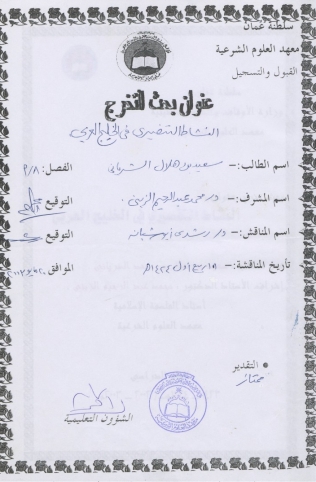 سلطنة عمان
معهد العلوم الشرعية
القبول والتسجيل
عنوان بحث التخرج
النشاط التنصيري في الخليج العربي
اسم الطالب:– سعيد بن هلال الشرياني الفصل: ٩/٨
اسم المشرف:– د. عبد الرحيم الزيني التوقيع
اسم المناقش:– د. رشدي أبو شبانة التوقيع
تاريخ المناقشة:– ١٩ ربيع أول ١٤٢٤هـ الموافق
التقدير
ممتاز
الشؤون التعليمية